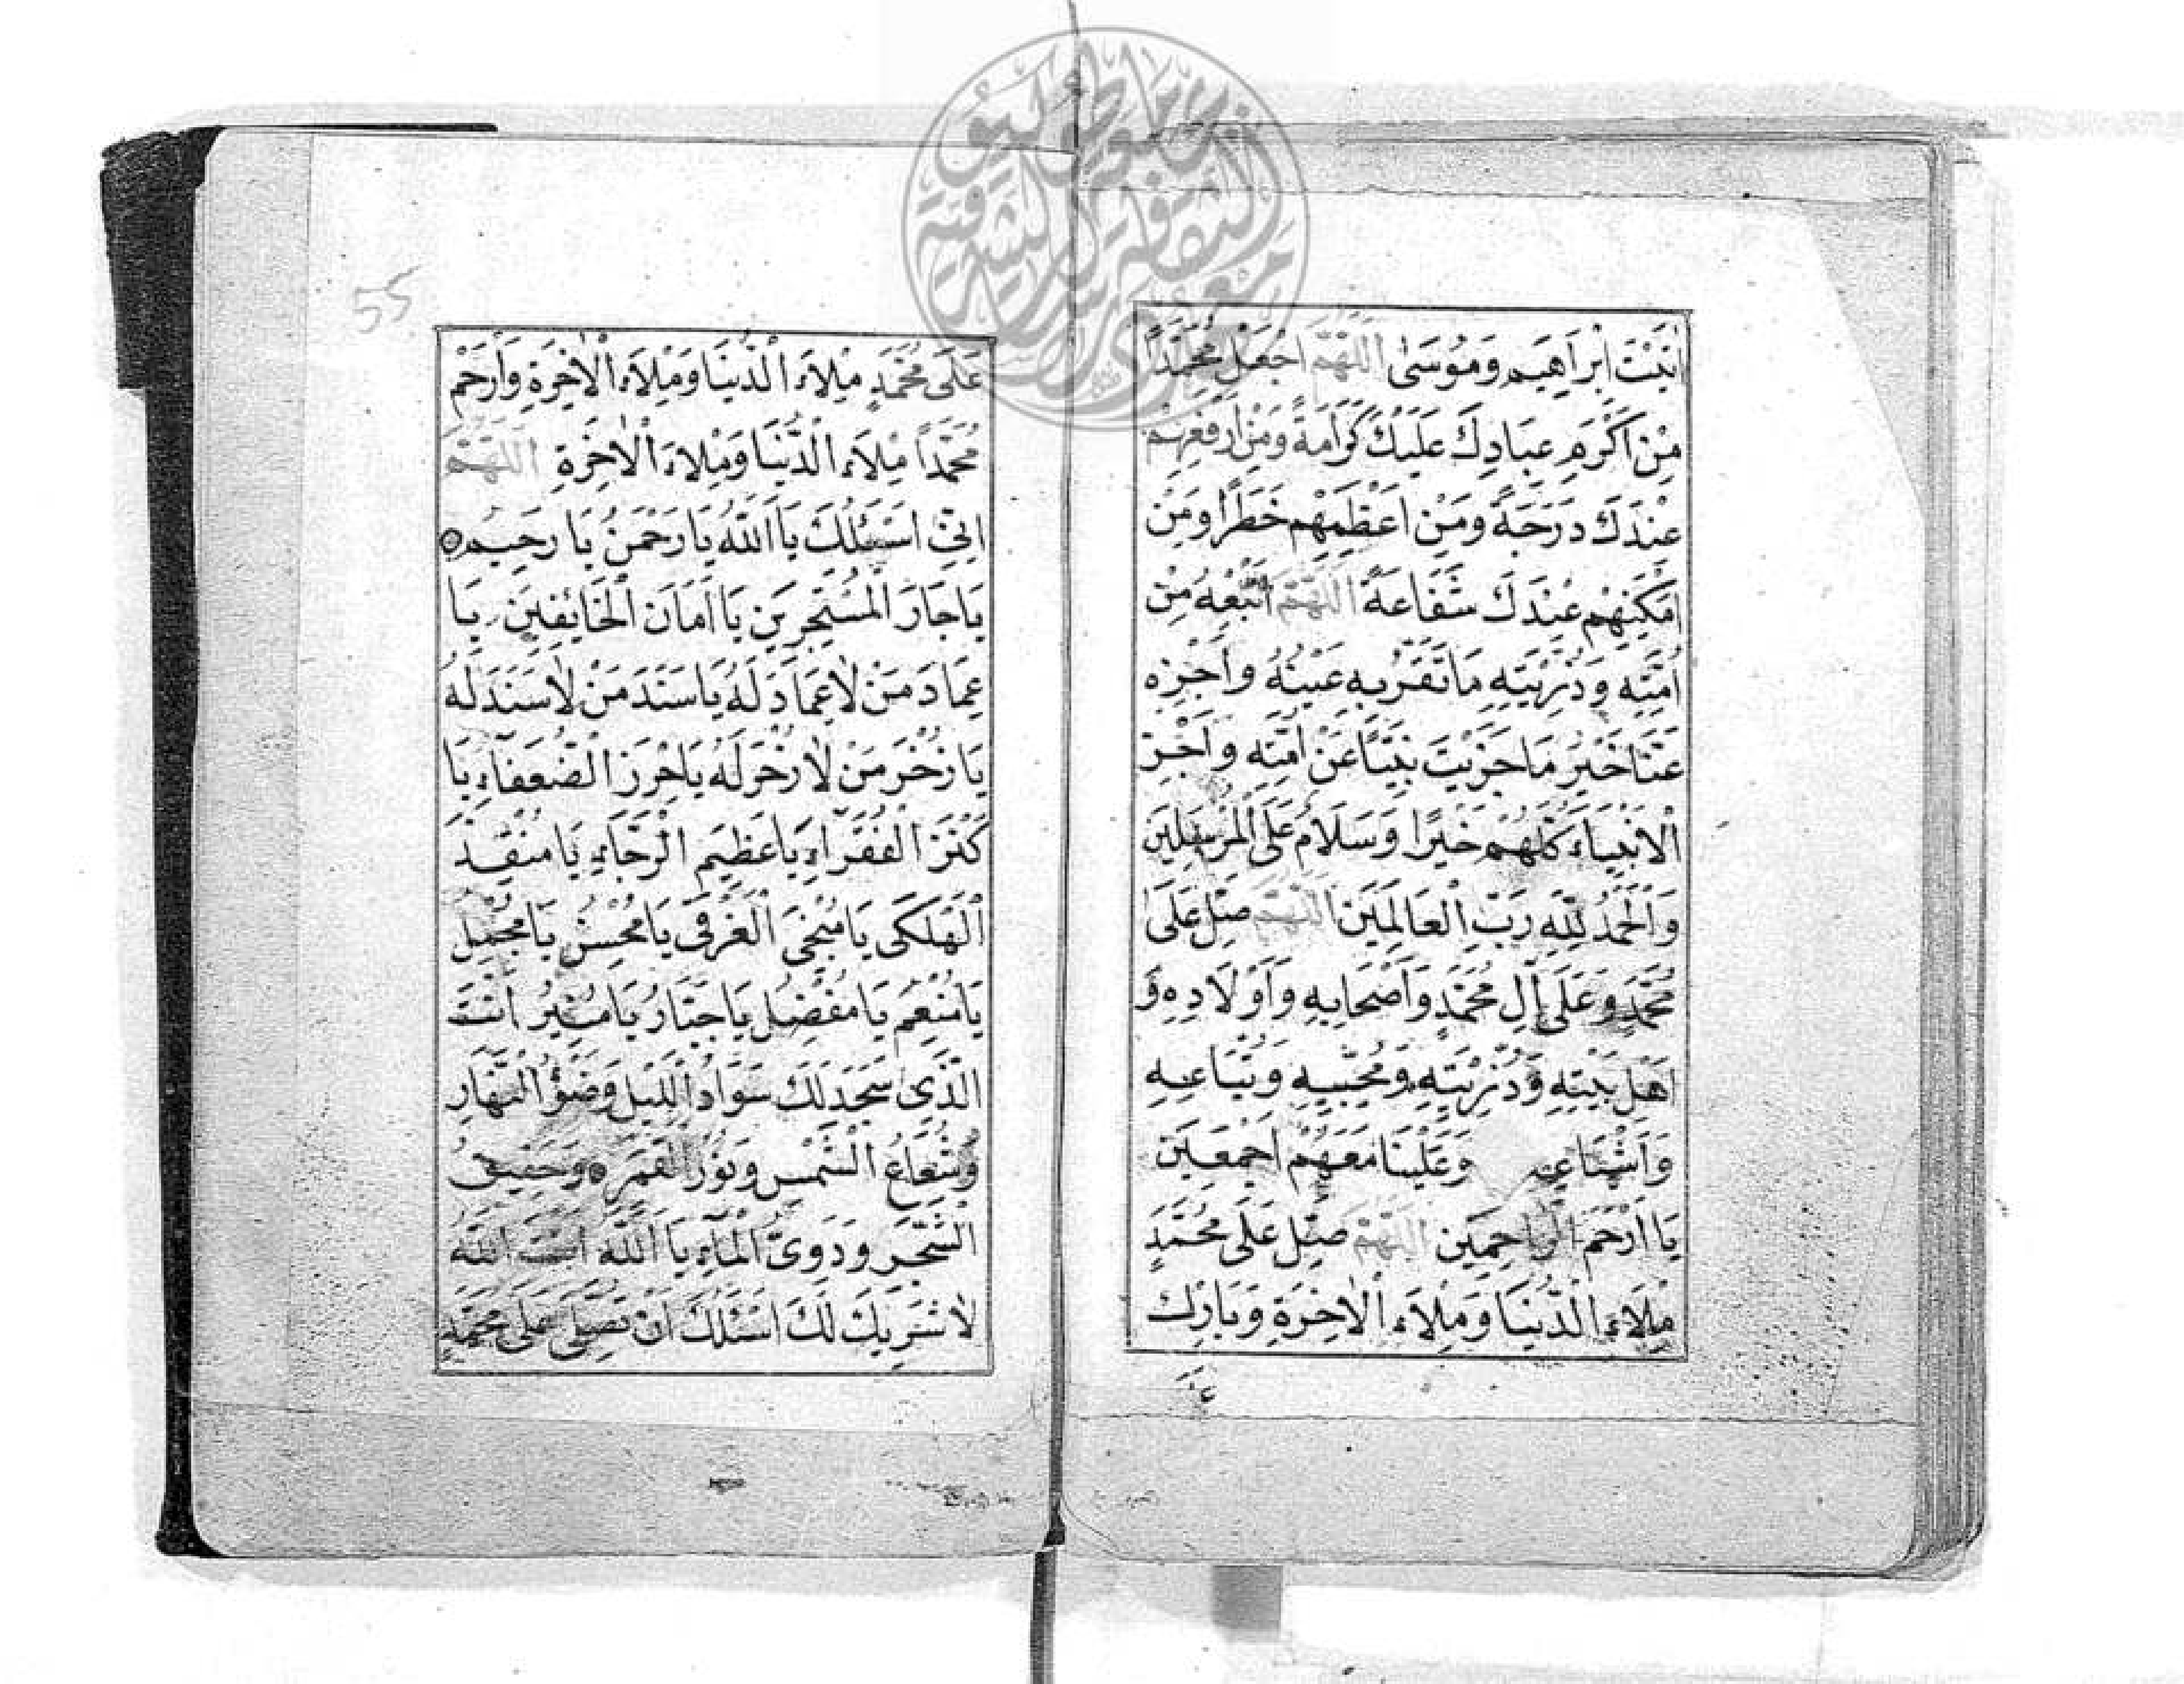 اٰتَيْتَ اِبْرَاهِيمَ وَمُوسَىٰ اَللّٰهُمَّ اجْعَلْ مُحَمَّدًا
مِنْ اَكْرَمِ عِبَادِكَ عَلَيْكَ كَرَامَةً وَمِنْ اَرْفَعِهِمْ
عِنْدَكَ دَرَجَةً وَمِنْ اَعْظَمِهِمْ خَطَرًا وَمِنْ
اَمْكَنِهِمْ عِنْدَكَ شَفَاعَةً اَللّٰهُمَّ اَتْبِعْهُ مِنْ
اُمَّتِهِ وَذُرِّيَّتِهِ مَا تَقَرُّ بِهِ عَيْنُهُ وَاَجْزِهِ
عَنَّا خَيْرَ مَا جَزَيْتَ نَبِيًّا عَنْ اُمَّتِهِ وَاَجْزِ
الْاَنْبِيَاءَ كُلَّهُمْ خَيْرًا وَسَلَامٌ عَلَى الْمُرْسَلِينَ
وَالْحَمْدُ لِلّٰهِ رَبِّ الْعَالَمِينَ اَللّٰهُمَّ صَلِّ عَلَىٰ
مُحَمَّدٍ وَعَلَىٰ اٰلِ مُحَمَّدٍ وَاَصْحَابِهِ وَاَوْلَادِهِ وَ
اَهْلِ بَيْتِهِ وَذُرِّيَّتِهِ وَمُحِبِّيهِ وَتُبَّاعِهِ
وَاَشْيَاعِهِ وَعَلَيْنَا مَعَهُمْ اَجْمَعِينَ
يَا اَرْحَمَ الرَّاحِمِينَ اَللّٰهُمَّ صَلِّ عَلَى مُحَمَّدٍ
مِلَاءَ الدُّنْيَا وَمِلَاءَ الْاٰخِرَةِ وَبَارِكْ
55
عَلَى مُحَمَّدٍ مِلَاءَ الدُّنْيَا وَمِلَاءَ الْاٰخِرَةِ وَارْحَمْ
مُحَمَّدًا مِلَاءَ الدُّنْيَا وَمِلَاءَ الْاٰخِرَةِ اَللّٰهُمَّ
اِنِّي اَسْئَلُكَ يَا اَللّٰهُ يَا رَحْمٰنُ يَا رَحِيمُ
يَا جَارَ الْمُسْتَجِيرِينَ يَا اَمَانَ الْخَائِفِينَ يَا
عِمَادَ مَنْ لَا عِمَادَ لَهُ يَا سَنَدَ مَنْ لَا سَنَدَ لَهُ
يَا ذُخْرَ مَنْ لَا ذُخْرَ لَهُ يَا حِرْزَ الضُّعَفَاءِ يَا
كَنْزَ الْفُقَرَاءِ يَا عَظِيمَ الرَّجَاءِ يَا مُنْقِذَ
الْهَلْكَى يَا مُنْجِيَ الْغَرْقَى يَا مُحْسِنُ يَا مُجْمِلُ
يَا مُنْعِمُ يَا مُفْضِلُ يَا جَبَّارُ يَا مُنِيرُ اَنْتَ
الَّذِي سَجَدَ لَكَ سَوَادُ اللَّيْلِ وَضَوْءُ النَّهَارِ
وَشُعَاعُ الشَّمْسِ وَنُورُ الْقَمَرِ وَحَفِيفُ
الشَّجَرِ وَدَوِيُّ الْمَاءِ يَا اَللّٰهُ اَنْتَ اللّٰهُ
لَا شَرِيكَ لَكَ اَسْئَلُكَ اَنْ تُصَلِّيَ عَلَى مُحَمَّدٍ